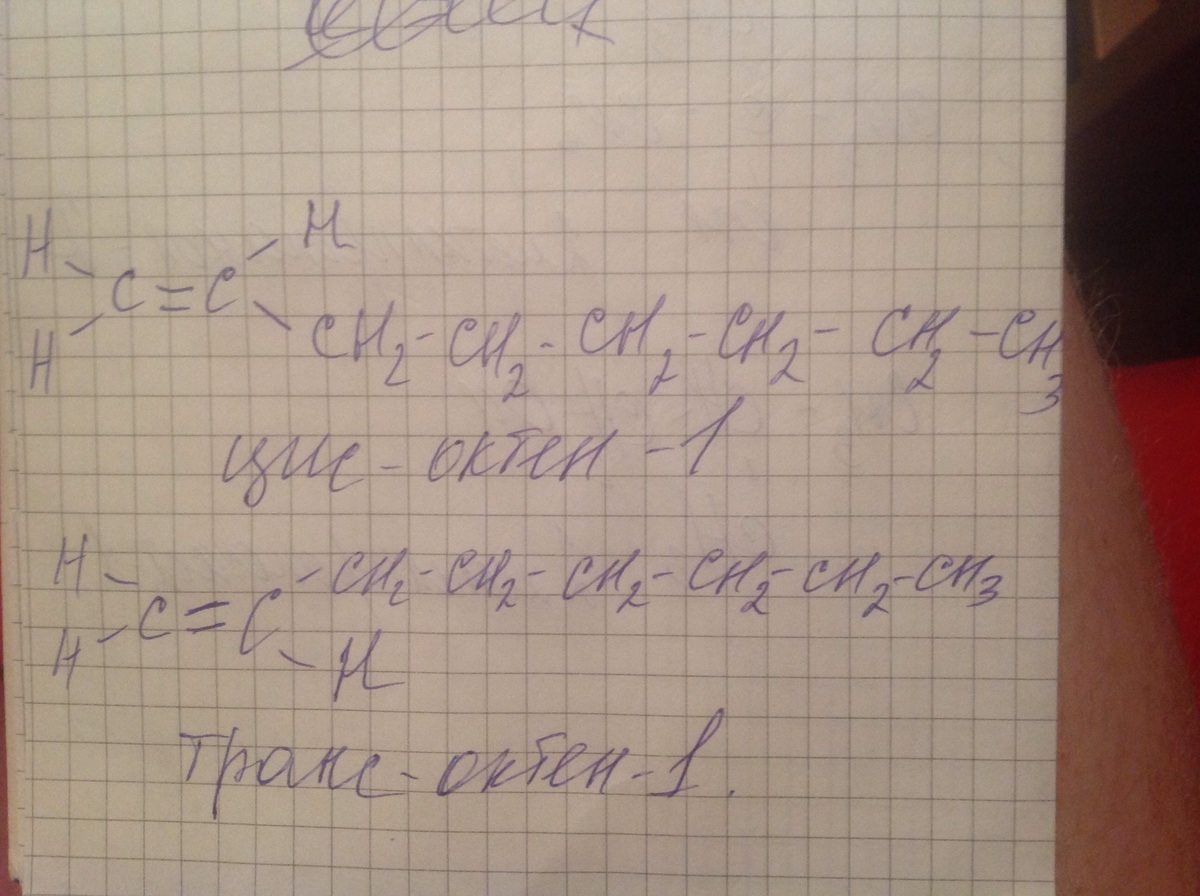 H H
C=C
H CH2-CH2-CH2-CH2-CH2-CH3
цис-октен-1
H CH2-CH2-CH2-CH2-CH2-CH3
C=C
H H
транс-октен-1.